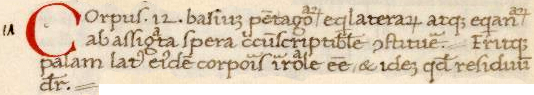 Corpus .12. basiuʒ pētagoꝝ eqlateraꝝ atqʒ eqanꝝ
ab assigta spera ccūscriptibile ꝯstitue. Eritqʒ
palam latꝰ eiꝰdē corpoīs irrōle eē, & ideʒ qd̄ residuū
dr̄.